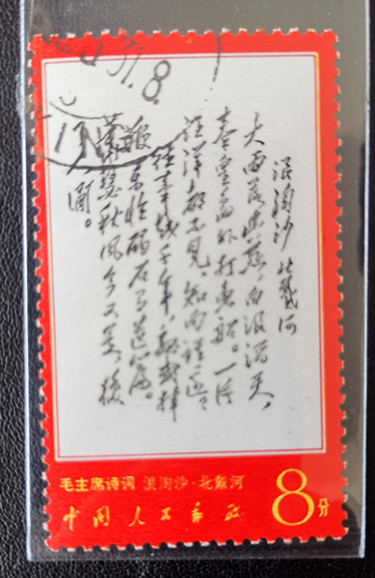 31.8.
17
浪淘沙 北戴河
大雨落幽燕,白浪滔天,
秦皇岛外打鱼船。一片
汪洋都不见,知向谁边
往事越千年,魏武挥
鞭,东临碣石有遗篇。
萧瑟秋风今又是,换
人间。
毛主席诗词 浪淘沙·北戴河
中国人民邮政 8分